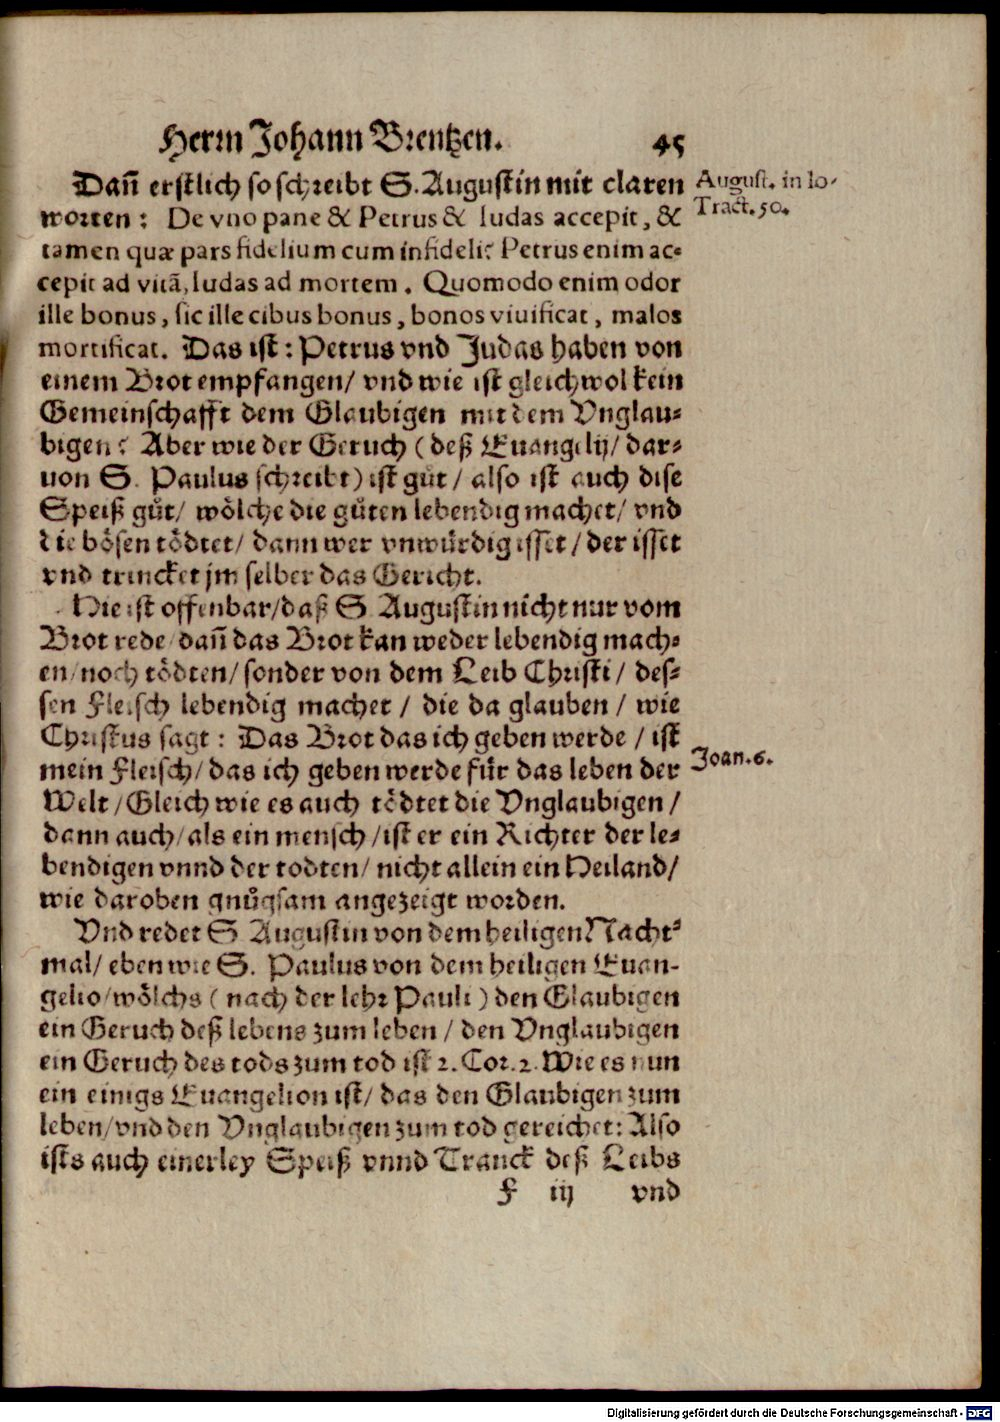 Herrn Johann Brentzen. 45
Dañ erstlich so schreibt S. Augustin mit claren
August. in Io-
Tract. 50.
worten: De vno pane & Petrus & Iudas accepit, &
tamen quæ pars fidelium cum infideli? Petrus enim ac-
cepit ad vitã, Iudas ad mortem. Quomodo enim odor
ille bonus, sic ille cibus bonus, bonos viuificat, malos
mortificat. Das ist: Petrus vnd Judas haben von
einem Brot empfangen/ vnd wie ist gleichwol kein
Gemeinschafft dem Glaubigen mit dem Vnglau-
bigen? Aber wie der Geruch (deß Euangelij/ dar-
uon S. Paulus schreibt) ist gůt/ also ist auch dise
Speiß gůt/ wölche die gůten lebendig machet/ vnd
die bösen tödtet/ dann wer vnwürdig isset/ der isset
vnd trincket jm selber das Gericht.
Hie ist offenbar/ daß S. Augustin nicht nur vom
Brot rede/ dañ das Brot kan weder lebendig mach-
en/ noch tödten/ sonder von dem Leib Christi/ des-
sen Fleisch lebendig machet/ die da glauben/ wie
Christus sagt: Das Brot das ich geben werde/ ist
Joan. 6.
mein Fleisch/ das ich geben werde für das leben der
Welt/ Gleich wie es auch tödtet die Vnglaubigen/
dann auch/ als ein mensch/ ist er ein Richter der le-
bendigen vnnd der todten/ nicht allein ein Heiland/
wie daroben gnůgsam angezeigt worden.
Vnd redet S. Augustin von dem heiligen Nacht-
mal/ eben wie S. Paulus von dem heiligen Euan-
gelio/ wölchs (nach der lehr Pauli) den Glaubigen
ein Geruch deß lebens zum leben/ den Vnglaubigen
ein Geruch des tods zum tod ist 2. Cor. 2. Wie es nun
ein einigs Euangelion ist/ das den Glaubigen zum
leben/ vnd den Vnglaubigen zum tod gereichet: Also
ists auch einerley Speiß vnnd Tranck deß Leibs
F iij vnd
Digitalisierung gefördert durch die Deutsche Forschungsgemeinschaft - DFG